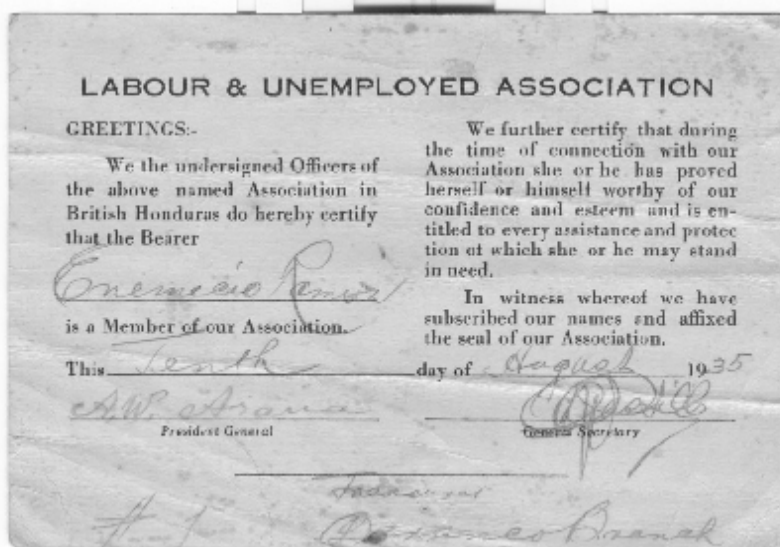 LABOUR & UNEMPLOYED ASSOCIATION
GREETINGS:-
We the undersigned Officers of
the above named Association in
British Honduras do hereby certify
that the Bearer
Enemecio
is a Member of our Association.
We further certify that during
the time of connection with our
Association she or he has proved
herself or himself worthy of our
confidence and esteem and is en-
titled to every assistance and protec
tion of which she or he may stand
in need.
In witness whereof we have
subscribed our names and affixed
the seal of our Association.
This Tenth day of August 1935
A.W. Arana
President General
General Secretary
Branch